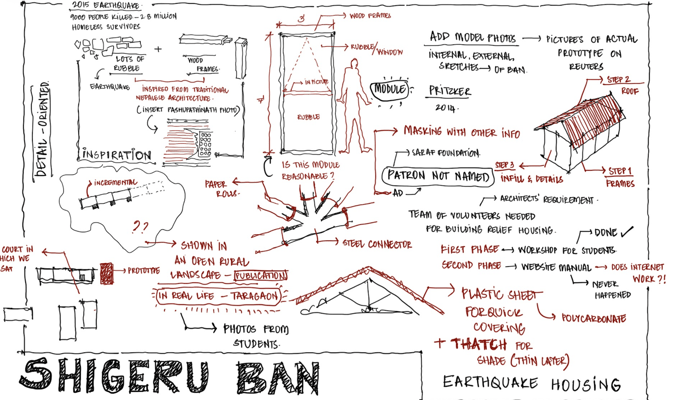 2015 EARTHQUAKE
9000 PEOPLE KILLED - 2.8 MILLION
HOMELESS SURVIVORS
+
LOTS OF
RUBBLE
WOOD
FRAMES
EARTHQUAKE
INSPIRED FROM TRADITIONAL
NEPALESE ARCHITECTURE.
(INSERT PASHUPATINATH PHOTO)
INSPIRATION
DETAIL - ORIENTED
3'
WOOD FRAMES
RUBBLE/
WINDOW
RUBBLE
IS THIS MODULE
REASONABLE?
MODULE
ADD MODEL PHOTOS → PICTURES OF ACTUAL
PROTOTYPE ON
REUTERS
INTERNAL, EXTERNAL,
SKETCHES → OF BAN.
PRITZKER
2014.
STEP 2
ROOF
STEP 3
INFILL & DETAILS
STEP 1
FRAMES
MASKING WITH OTHER INFO
SARAF FOUNDATION
PATRON NOT NAMED
AD
ARCHITECTS' REQUIREMENT.
TEAM OF VOLUNTEERS NEEDED
FOR BUILDING RELIEF HOUSING.
FIRST PHASE → WORKSHOP FOR STUDENTS
DONE ✓
SECOND PHASE → WEBSITE MANUAL → DOES INTERNET
WORK?!
NEVER
HAPPENED
INCREMENTAL
??
PAPER
ROLLS.
STEEL CONNECTOR
COURT IN
WHICH WE
SAT
PROTOTYPE
SHOWN IN
AN OPEN RURAL
LANDSCAPE - PUBLICATION
IN REAL LIFE - TARAGAON
PHOTOS FROM
STUDENTS.
PLASTIC SHEET
FOR QUICK
COVERING
POLYCARBONATE
+ THATCH FOR
SHADE (THIN LAYER)
SHIGERU BAN
EARTHQUAKE HOUSING